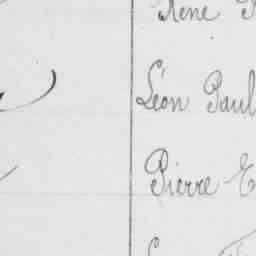 René
Léon Paul
Pierre E